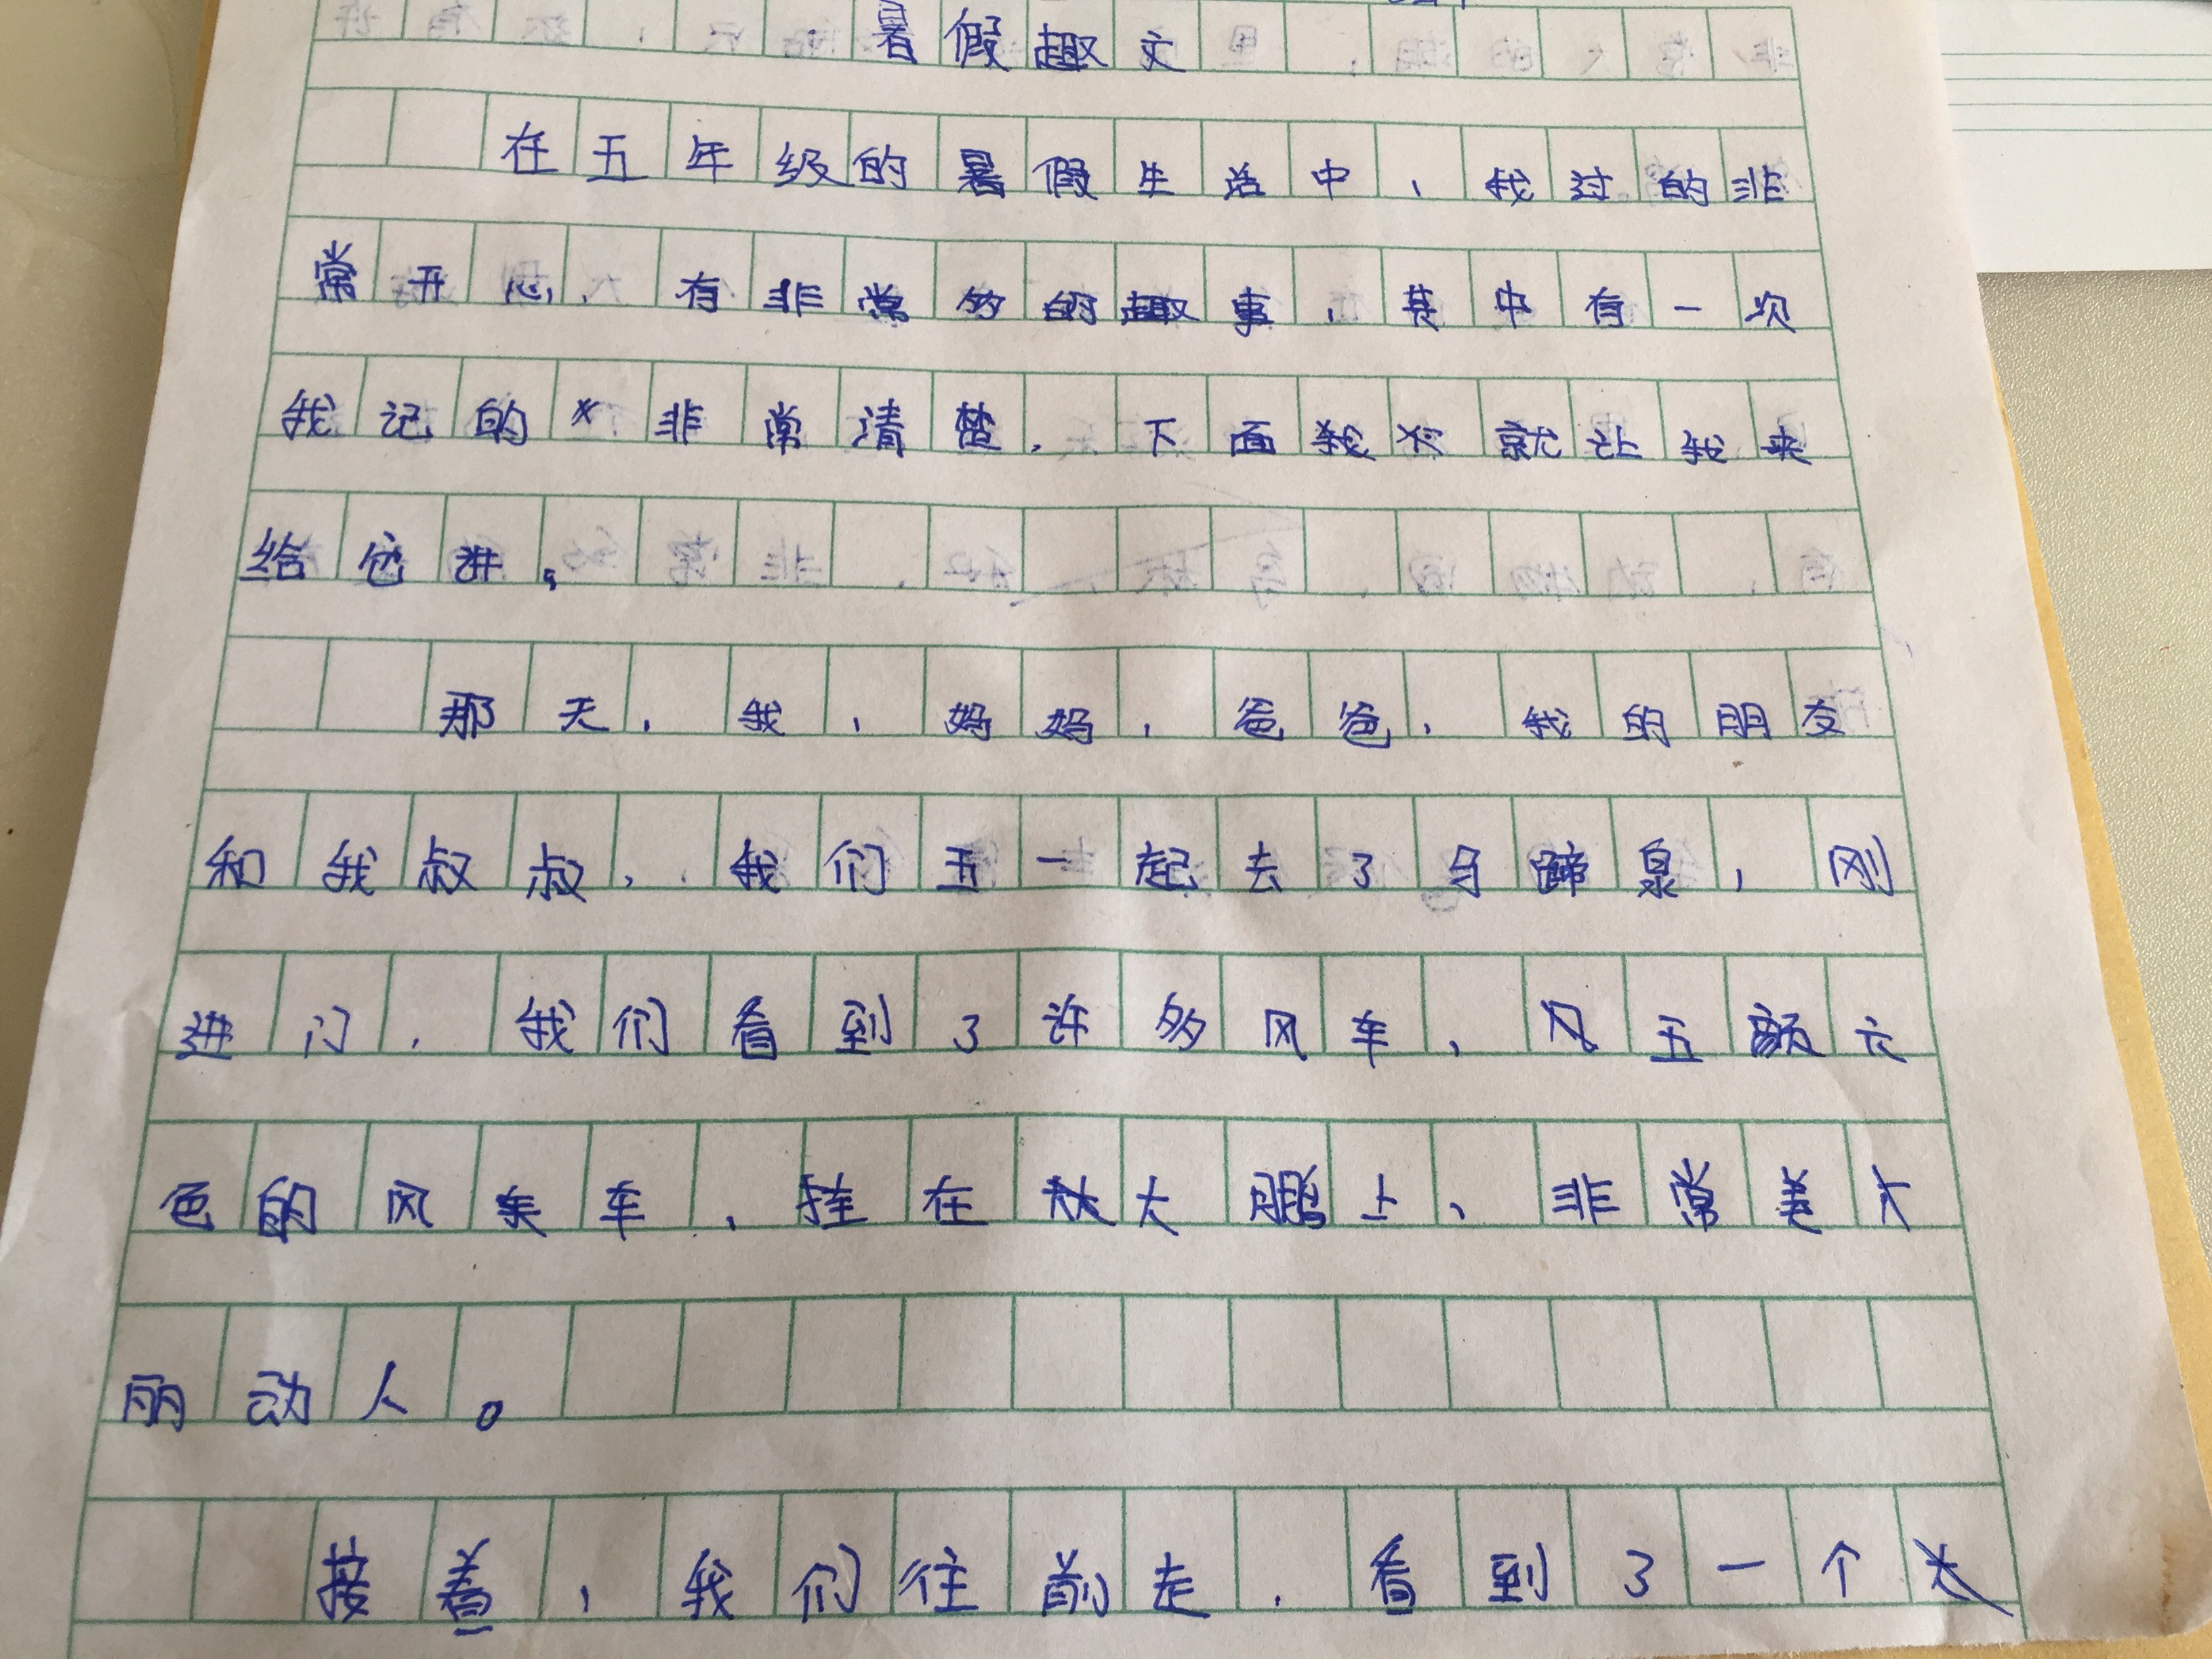 暑假趣文
在五年级的暑假生活中，我过的非
常开心，有非常多的趣事，其中有一次
我记的非常清楚，下面就让我来
给它讲。
那天，我，妈妈，爸爸，我的朋友
和我叔叔，我们五一起去了马蹄泉，刚
进门，我们看到了许多风车，风五颜六
色的风车，挂在大鹏上，非常美
丽动人。
接着，我们往前走，看到了一个